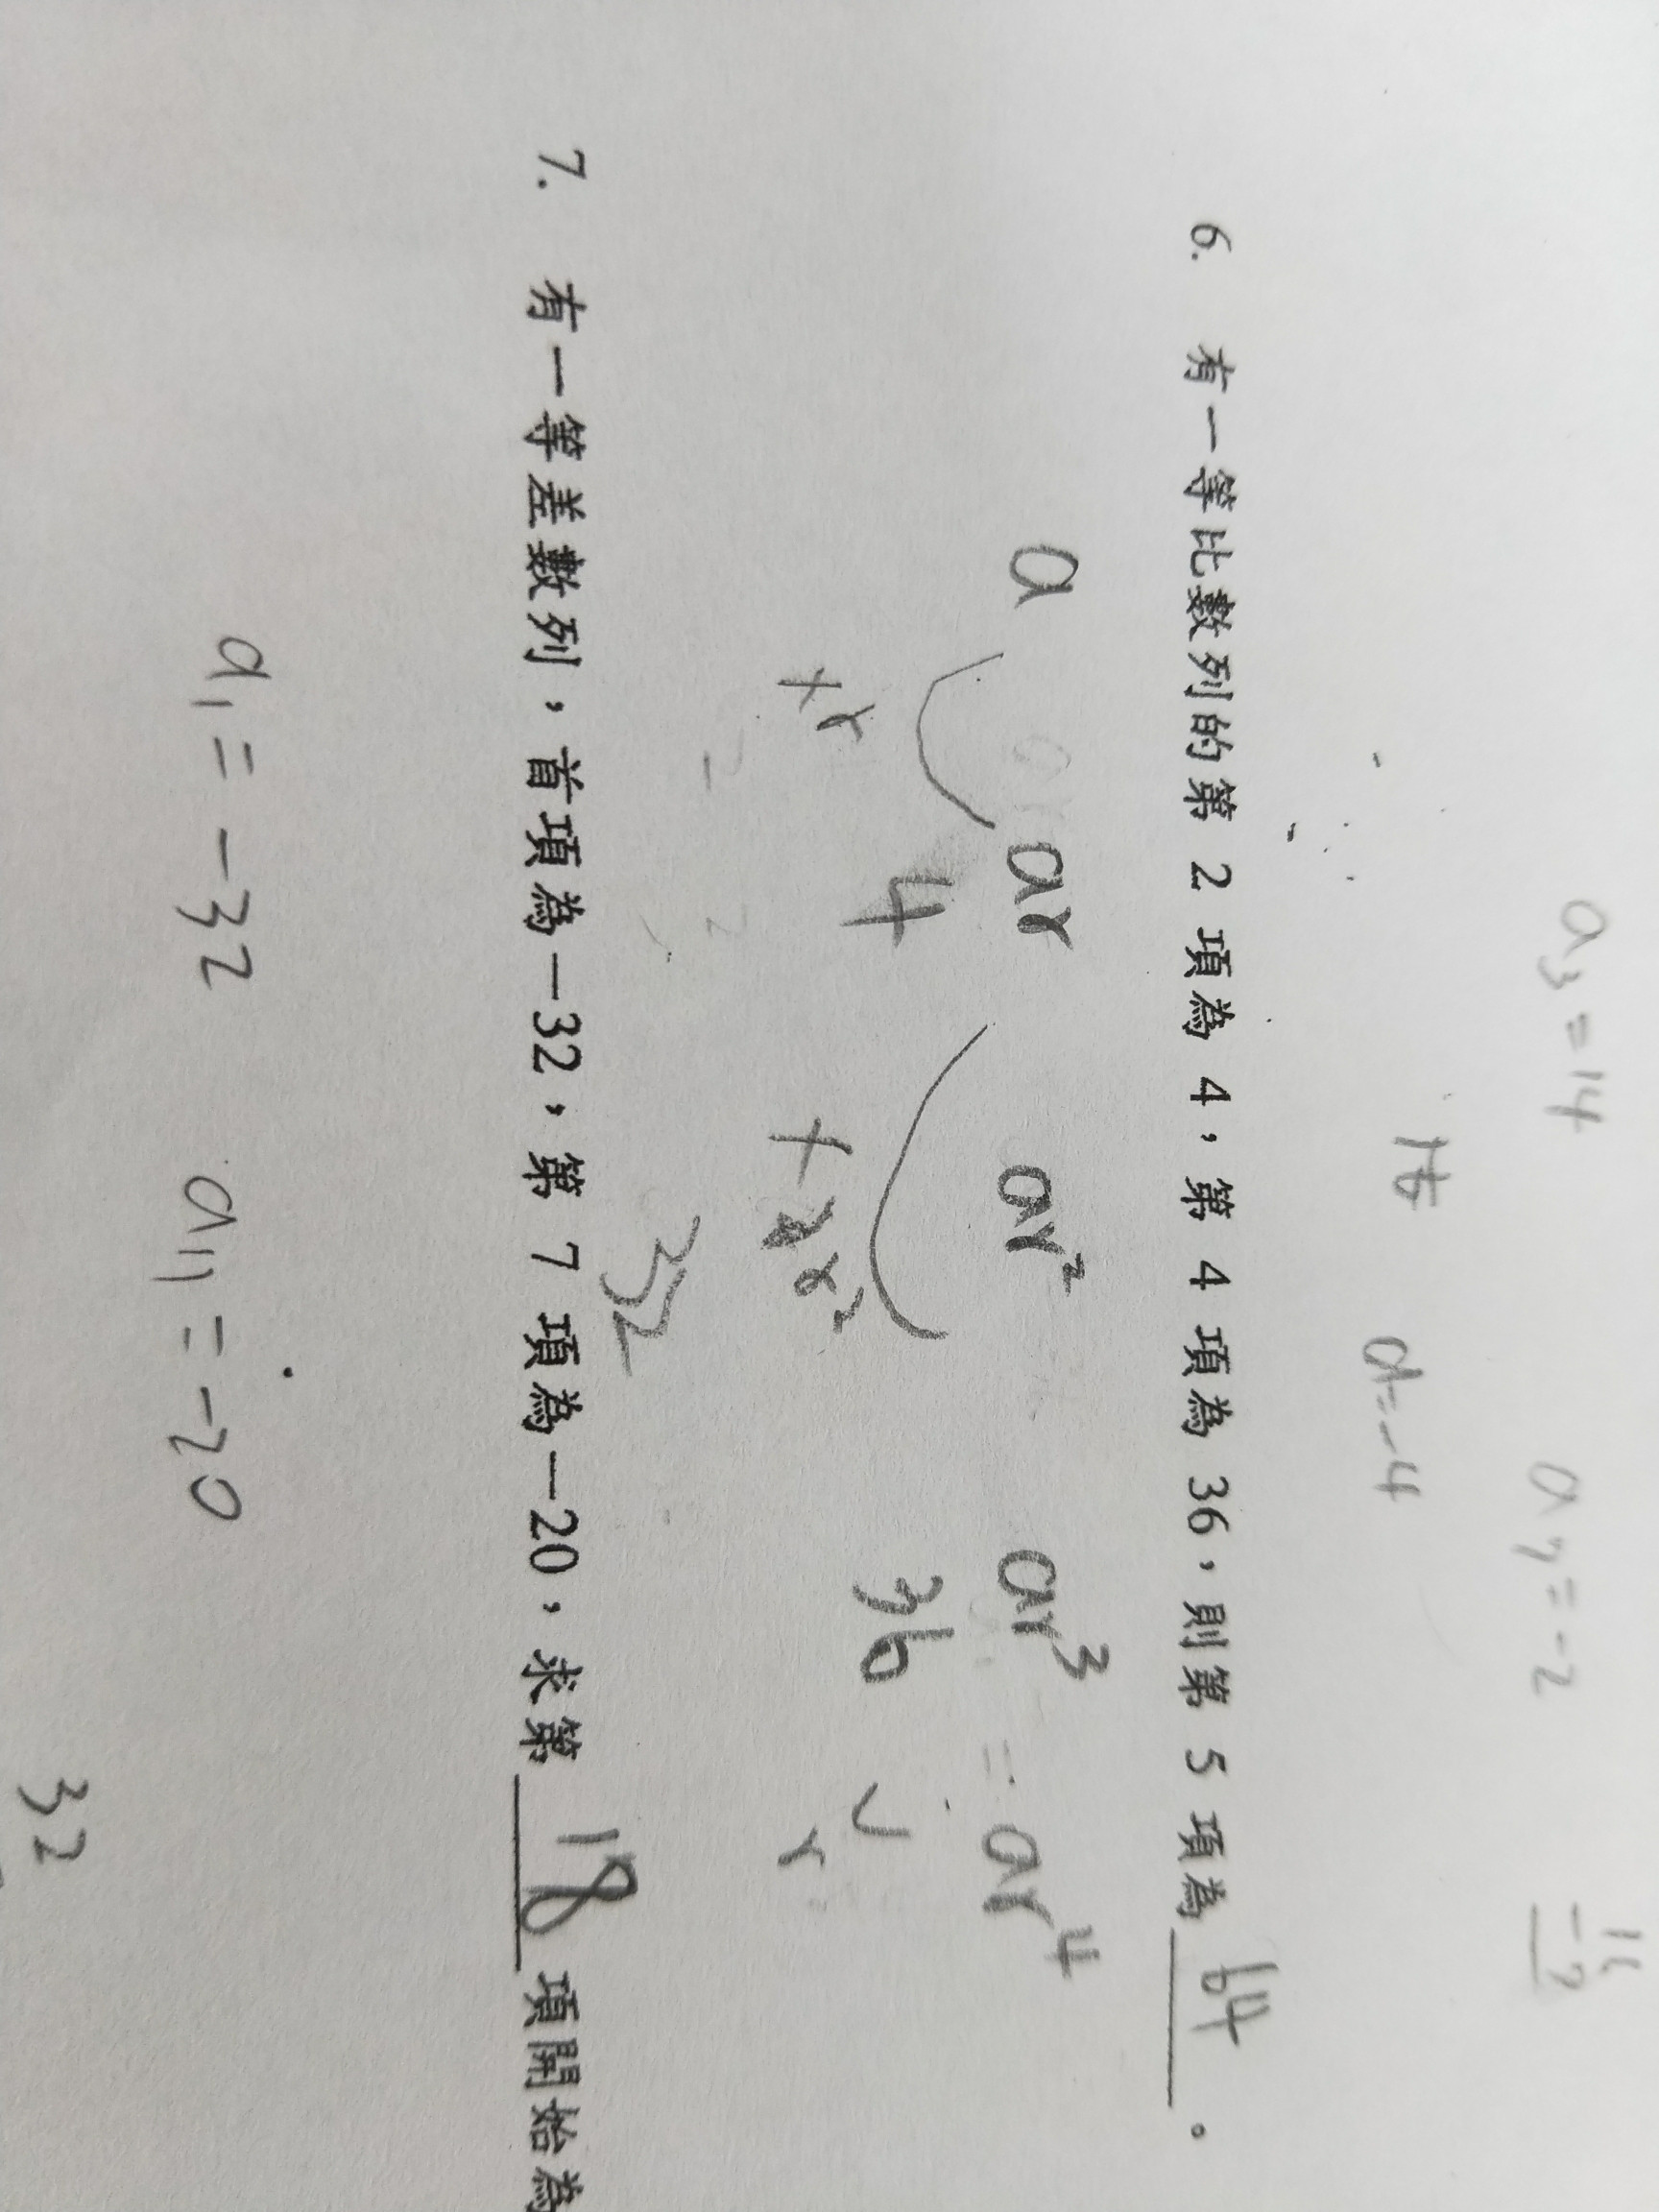 a₃=14 a₇=-2
16 d=-4
6. 有一等比數列的第 2 項為 4，第 4 項為 36，則第 5 項為 64 。
a ar ar² ar³ = ar⁴
×r 4 ×r² 36 r
32
7. 有一等差數列，首項為−32，第 7 項為−20，求第 18 項開始為
a₁=-32 a₁₁=-20
32